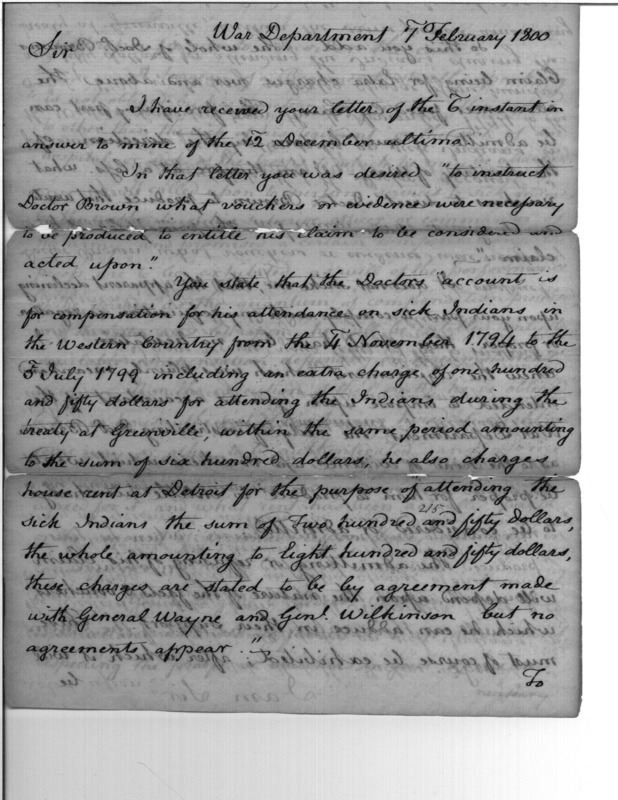 War Department 7 February 1800
Sir
I have received your letter of the 6 instant in
answer to mine of the 12 December ultimo.
In that letter you was desired "to instruct
Doctor Brown what vouchers or evidence were necessary
to be produced to entitle his claim to be considered and
acted upon."
You state that the Doctors "account is
for compensation for his attendance on sick Indians in
the Western Country from the 4 November 1794 to the
5 July 1799 including an extra charge of one hundred
and fifty dollars for attending the Indians during the
treaty at Greenville, within the same period amounting
to the sum of six hundred dollars, he also charges
house rent at Detroit for the purpose of attending the
215
sick Indians the sum of Two hundred and fifty Dollars,
the whole amounting to Eight hundred and fifty dollars,
these charges are stated to be by agreement made
with General Wayne and Genl. Wilkinson but no
agreements appear."
To